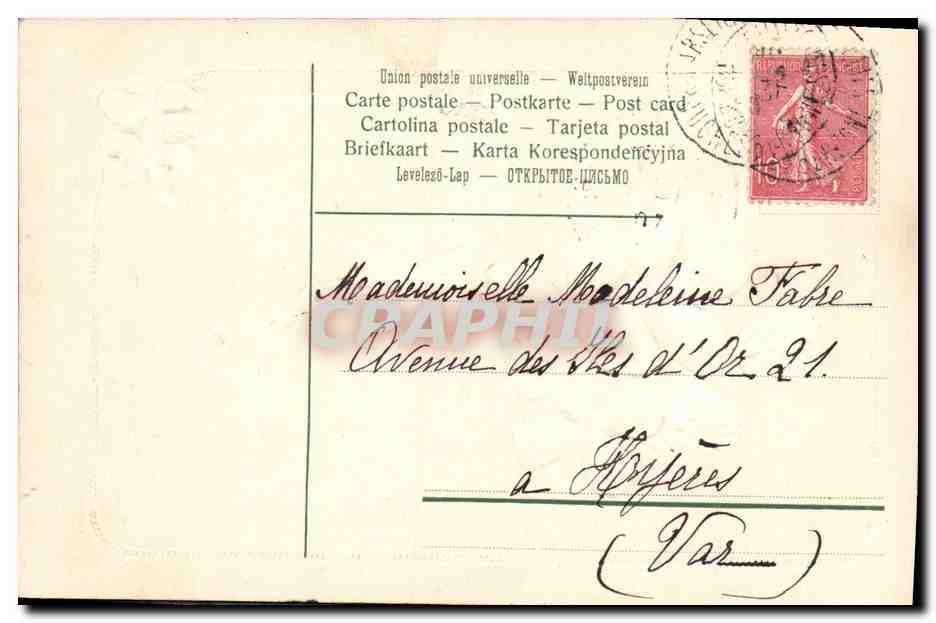 Union postale universelle — Weltpostverein
Carte postale — Postkarte — Post card
Cartolina postale — Tarjeta postal
Briefkaart — Karta Korespondencyjna
Levelező-Lap — ОТКРЫТОЕ-ПИСЬМО
Mademoiselle Madeleine Fabre
CPAPHIL
Avenue des Iles d'Or 21.
a Hyères
(Var)